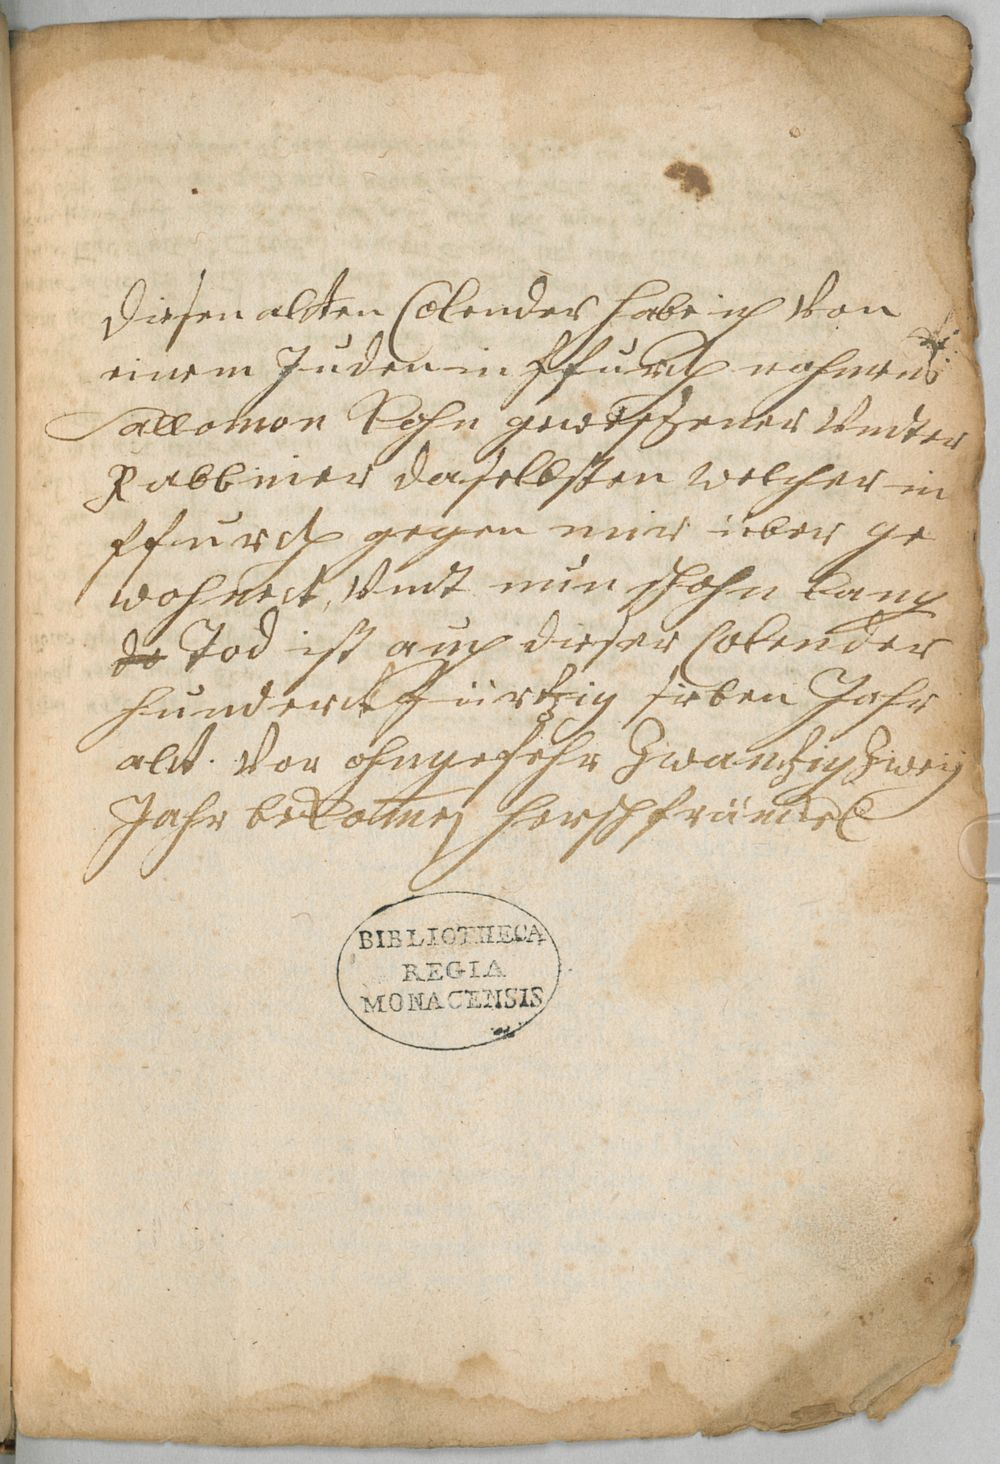 Diesen altten Calender habe ich Von
einem Juden in ffürth nahmens
Sallomon Kohn gewesßener Vnter
Rabbiner daselbsten welcher in
ffürth gegen mir über ge
wohnet, Vndt nun schohn lang
Tod ist auch dieser Calender
hundert fürtzig sieben Jahr
alt. Vor ohngefehr Zwantzig Zweÿ
Jahr bekomen
BIBLIOTHECA
REGIA
MONACENSIS